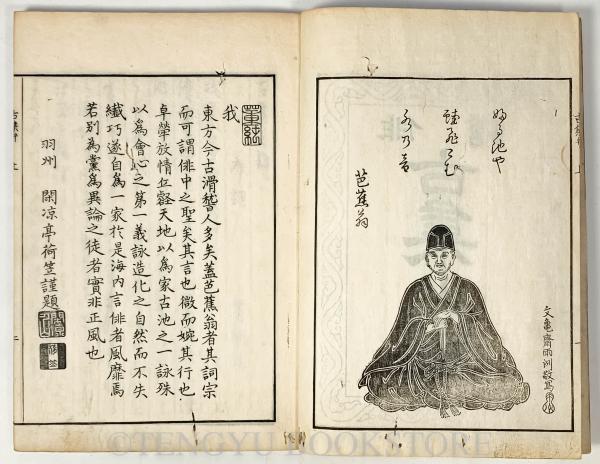 婦る池や
蛙飛こむ
水乃音
芭蕉翁
文亀齋雨洲敬寫
我
東方今古滑稽人多矣蓋芭蕉翁者其詞宗
而可謂俳中之聖矣其言也微而婉其行也
卓犖放情丘壑天地以為家古池之一詠殊
以為會心之第一義詠造化之自然而不失
纎巧遂自為一家於是海内言俳者風靡焉
若別為黨為異論之徒者實非正風也
羽州 閑凉亭荷笠謹題
©TENGYU BOOKSTORE